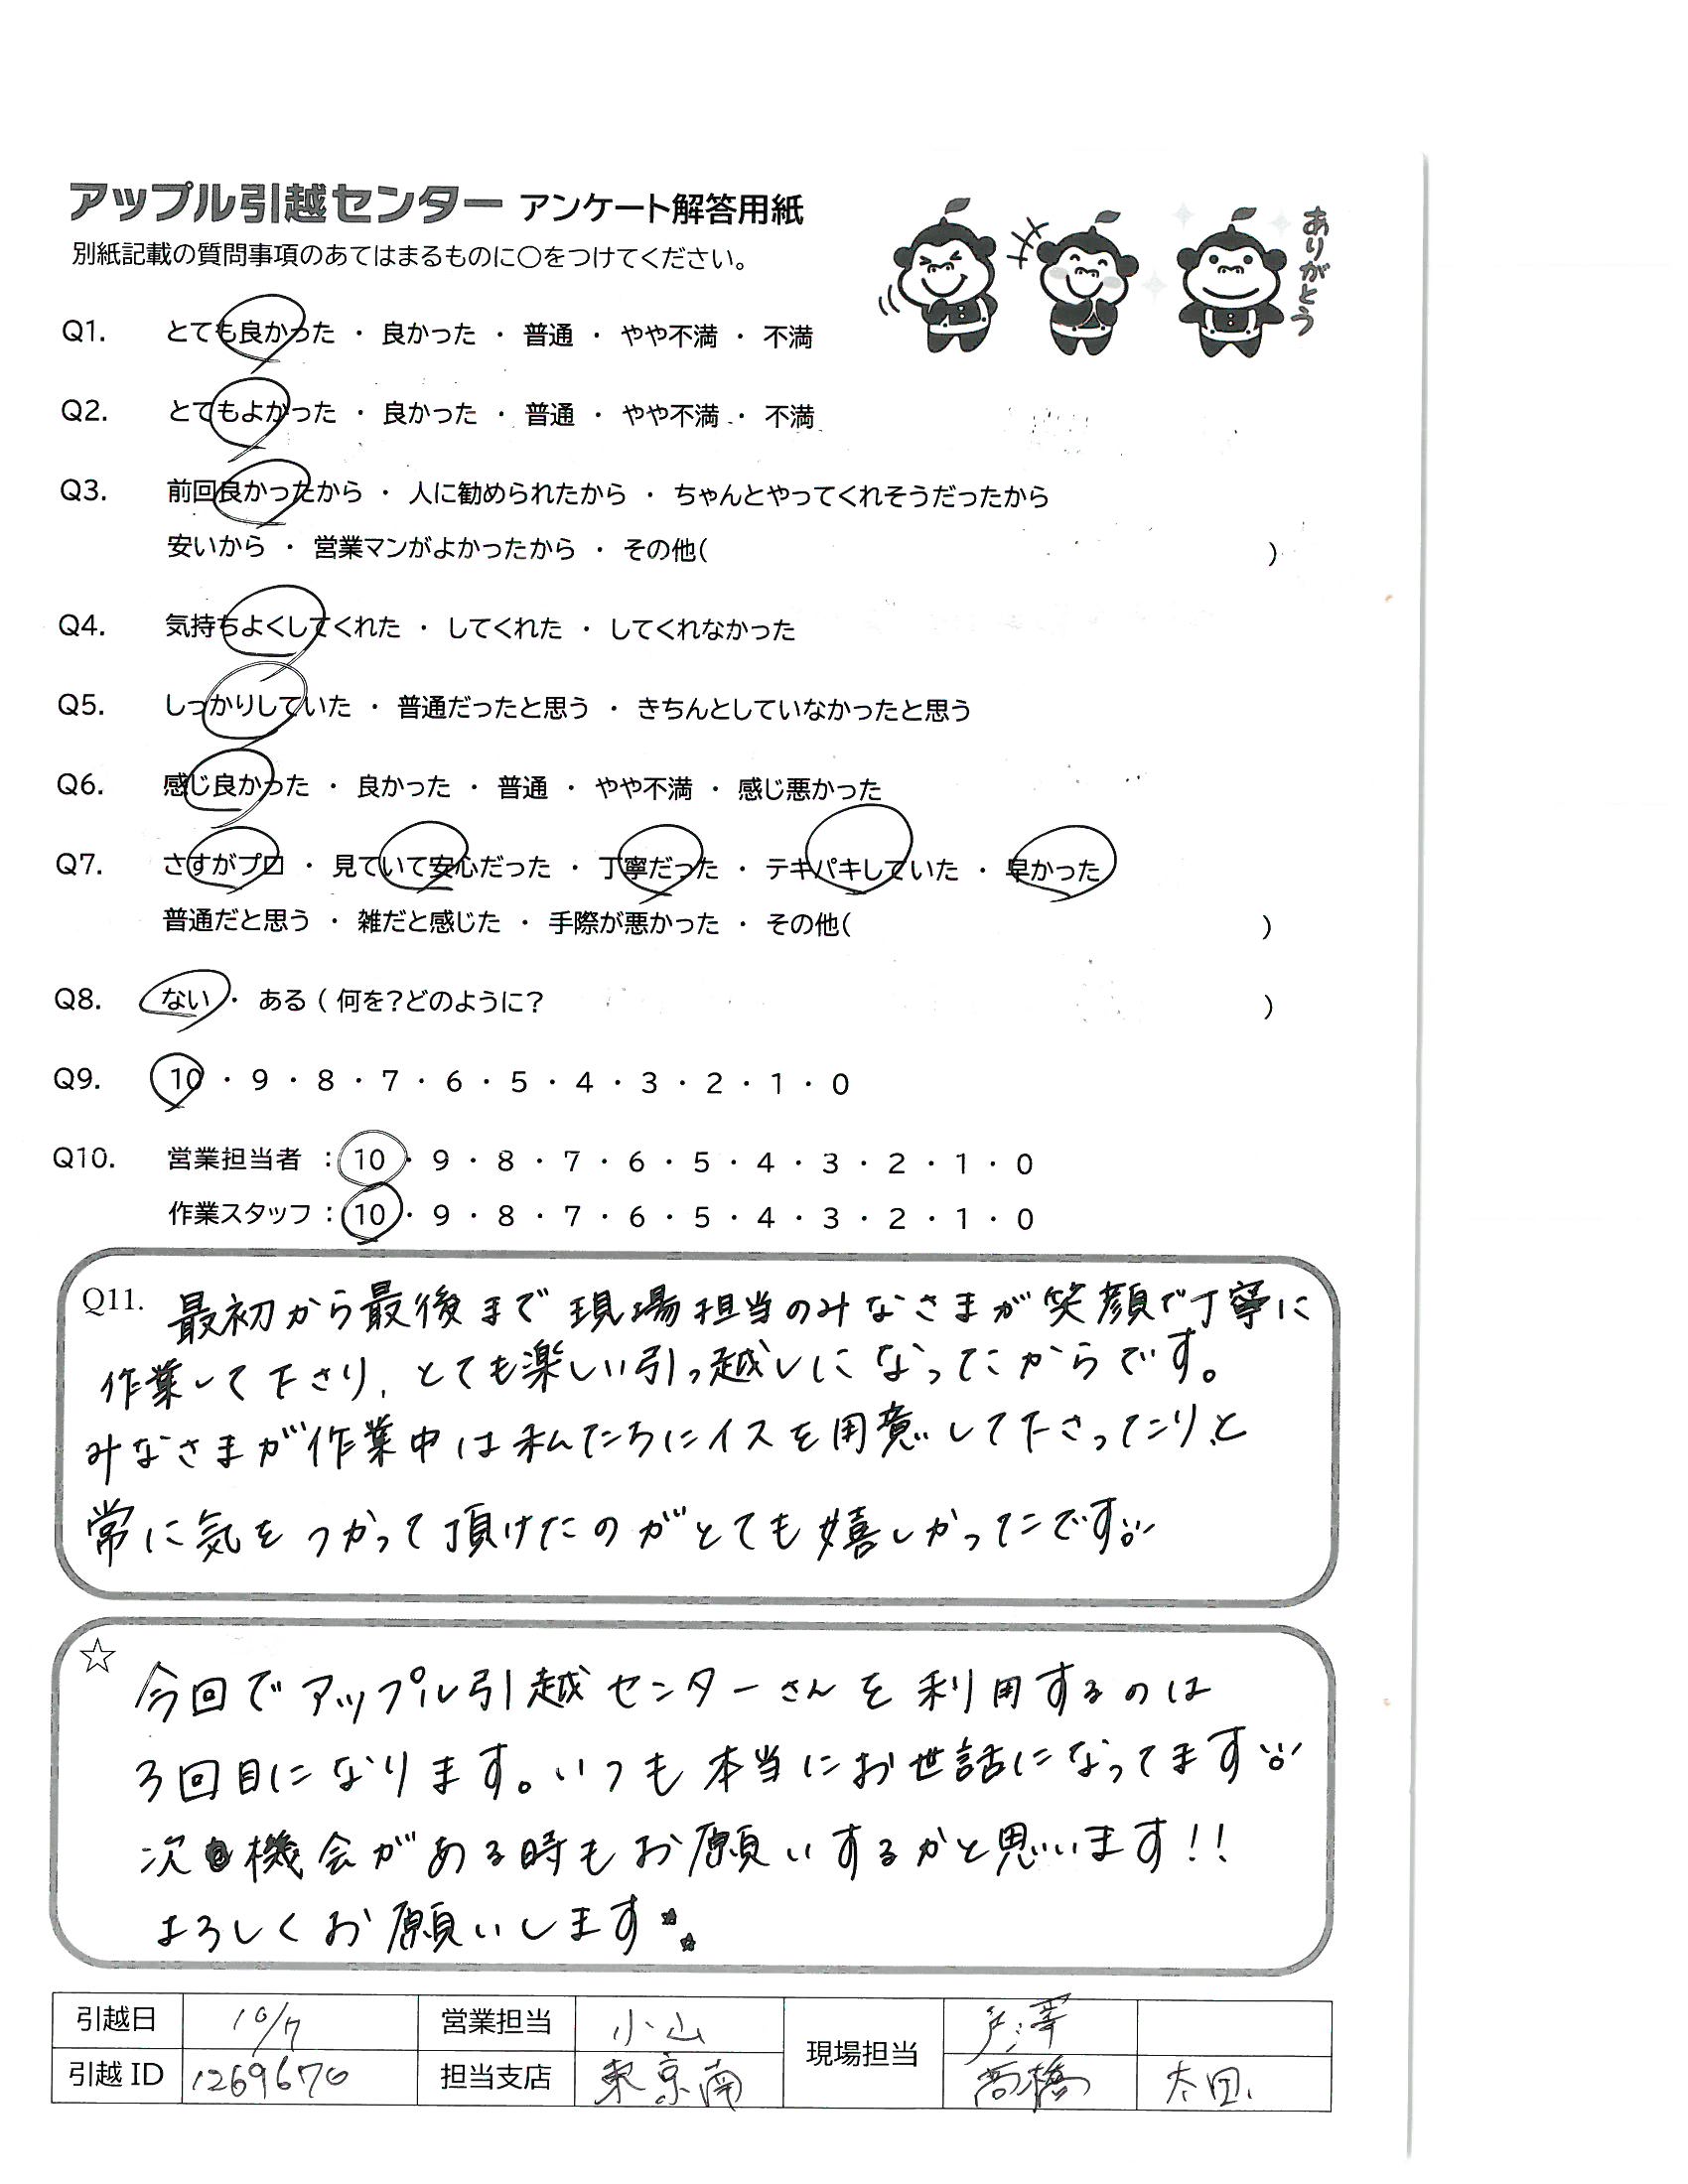 アップル引越センター アンケート解答用紙
別紙記載の質問事項のあてはまるものに〇をつけてください。
ありがとう
Q1. とても良かった ・ 良かった ・ 普通 ・ やや不満 ・ 不満
Q2. とてもよかった ・ 良かった ・ 普通 ・ やや不満 ・ 不満
Q3. 前回良かったから ・ 人に勧められたから ・ ちゃんとやってくれそうだったから
安いから ・ 営業マンがよかったから ・ その他( )
Q4. 気持ちよくしてくれた ・ してくれた ・ してくれなかった
Q5. しっかりしていた ・ 普通だったと思う ・ きちんとしていなかったと思う
Q6. 感じ良かった ・ 良かった ・ 普通 ・ やや不満 ・ 感じ悪かった
Q7. さすがプロ ・ 見ていて安心だった ・ 丁寧だった ・ テキパキしていた ・ 早かった
普通だと思う ・ 雑だと感じた ・ 手際が悪かった ・ その他( )
Q8. ない ・ ある ( 何を?どのように? )
Q9. 10 ・ 9 ・ 8 ・ 7 ・ 6 ・ 5 ・ 4 ・ 3 ・ 2 ・ 1 ・ 0
Q10. 営業担当者 : 10 ・ 9 ・ 8 ・ 7 ・ 6 ・ 5 ・ 4 ・ 3 ・ 2 ・ 1 ・ 0
作業スタッフ : 10 ・ 9 ・ 8 ・ 7 ・ 6 ・ 5 ・ 4 ・ 3 ・ 2 ・ 1 ・ 0
Q11. 最初から最後まで現場担当のみなさまが笑顔で丁寧に
作業して下さり、とても楽しい引っ越しになったからです。
みなさまが作業中は私たちにイスを用意して下さったり、と
常に気をつかって頂けたのがとても嬉しかったです
☆ 今回でアップル引越センターさんを利用するのは
3回目になります。いつも本当にお世話になってます
次 機会がある時もお願いするかと思います!!
よろしくお願いします
引越日 10/7 営業担当 小山 現場担当 戸澤
引越 ID 1269670 担当支店 東京南 高橋 太田